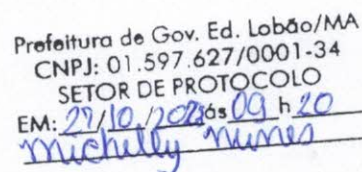 Prefeitura de Gov. Ed. Lobão/MA
CNPJ: 01.597.627/0001-34
SETOR DE PROTOCOLO
EM: 27/10/2021 às 09 h 20
Michelly Nunes